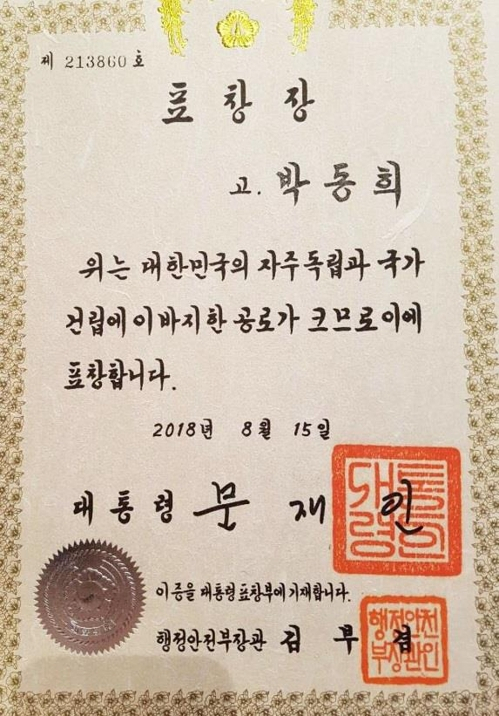 제 213860 호
표창장
고. 박동희
위는 대한민국의 자주독립과 국가
건립에 이바지한 공로가 크므로 이에
표창합니다.
2018년 8월 15일
대통령 문재인
대통령의인
이 증을 대통령표창부에 기재합니다.
행정안전부장관 김부겸
행정안전부장관인